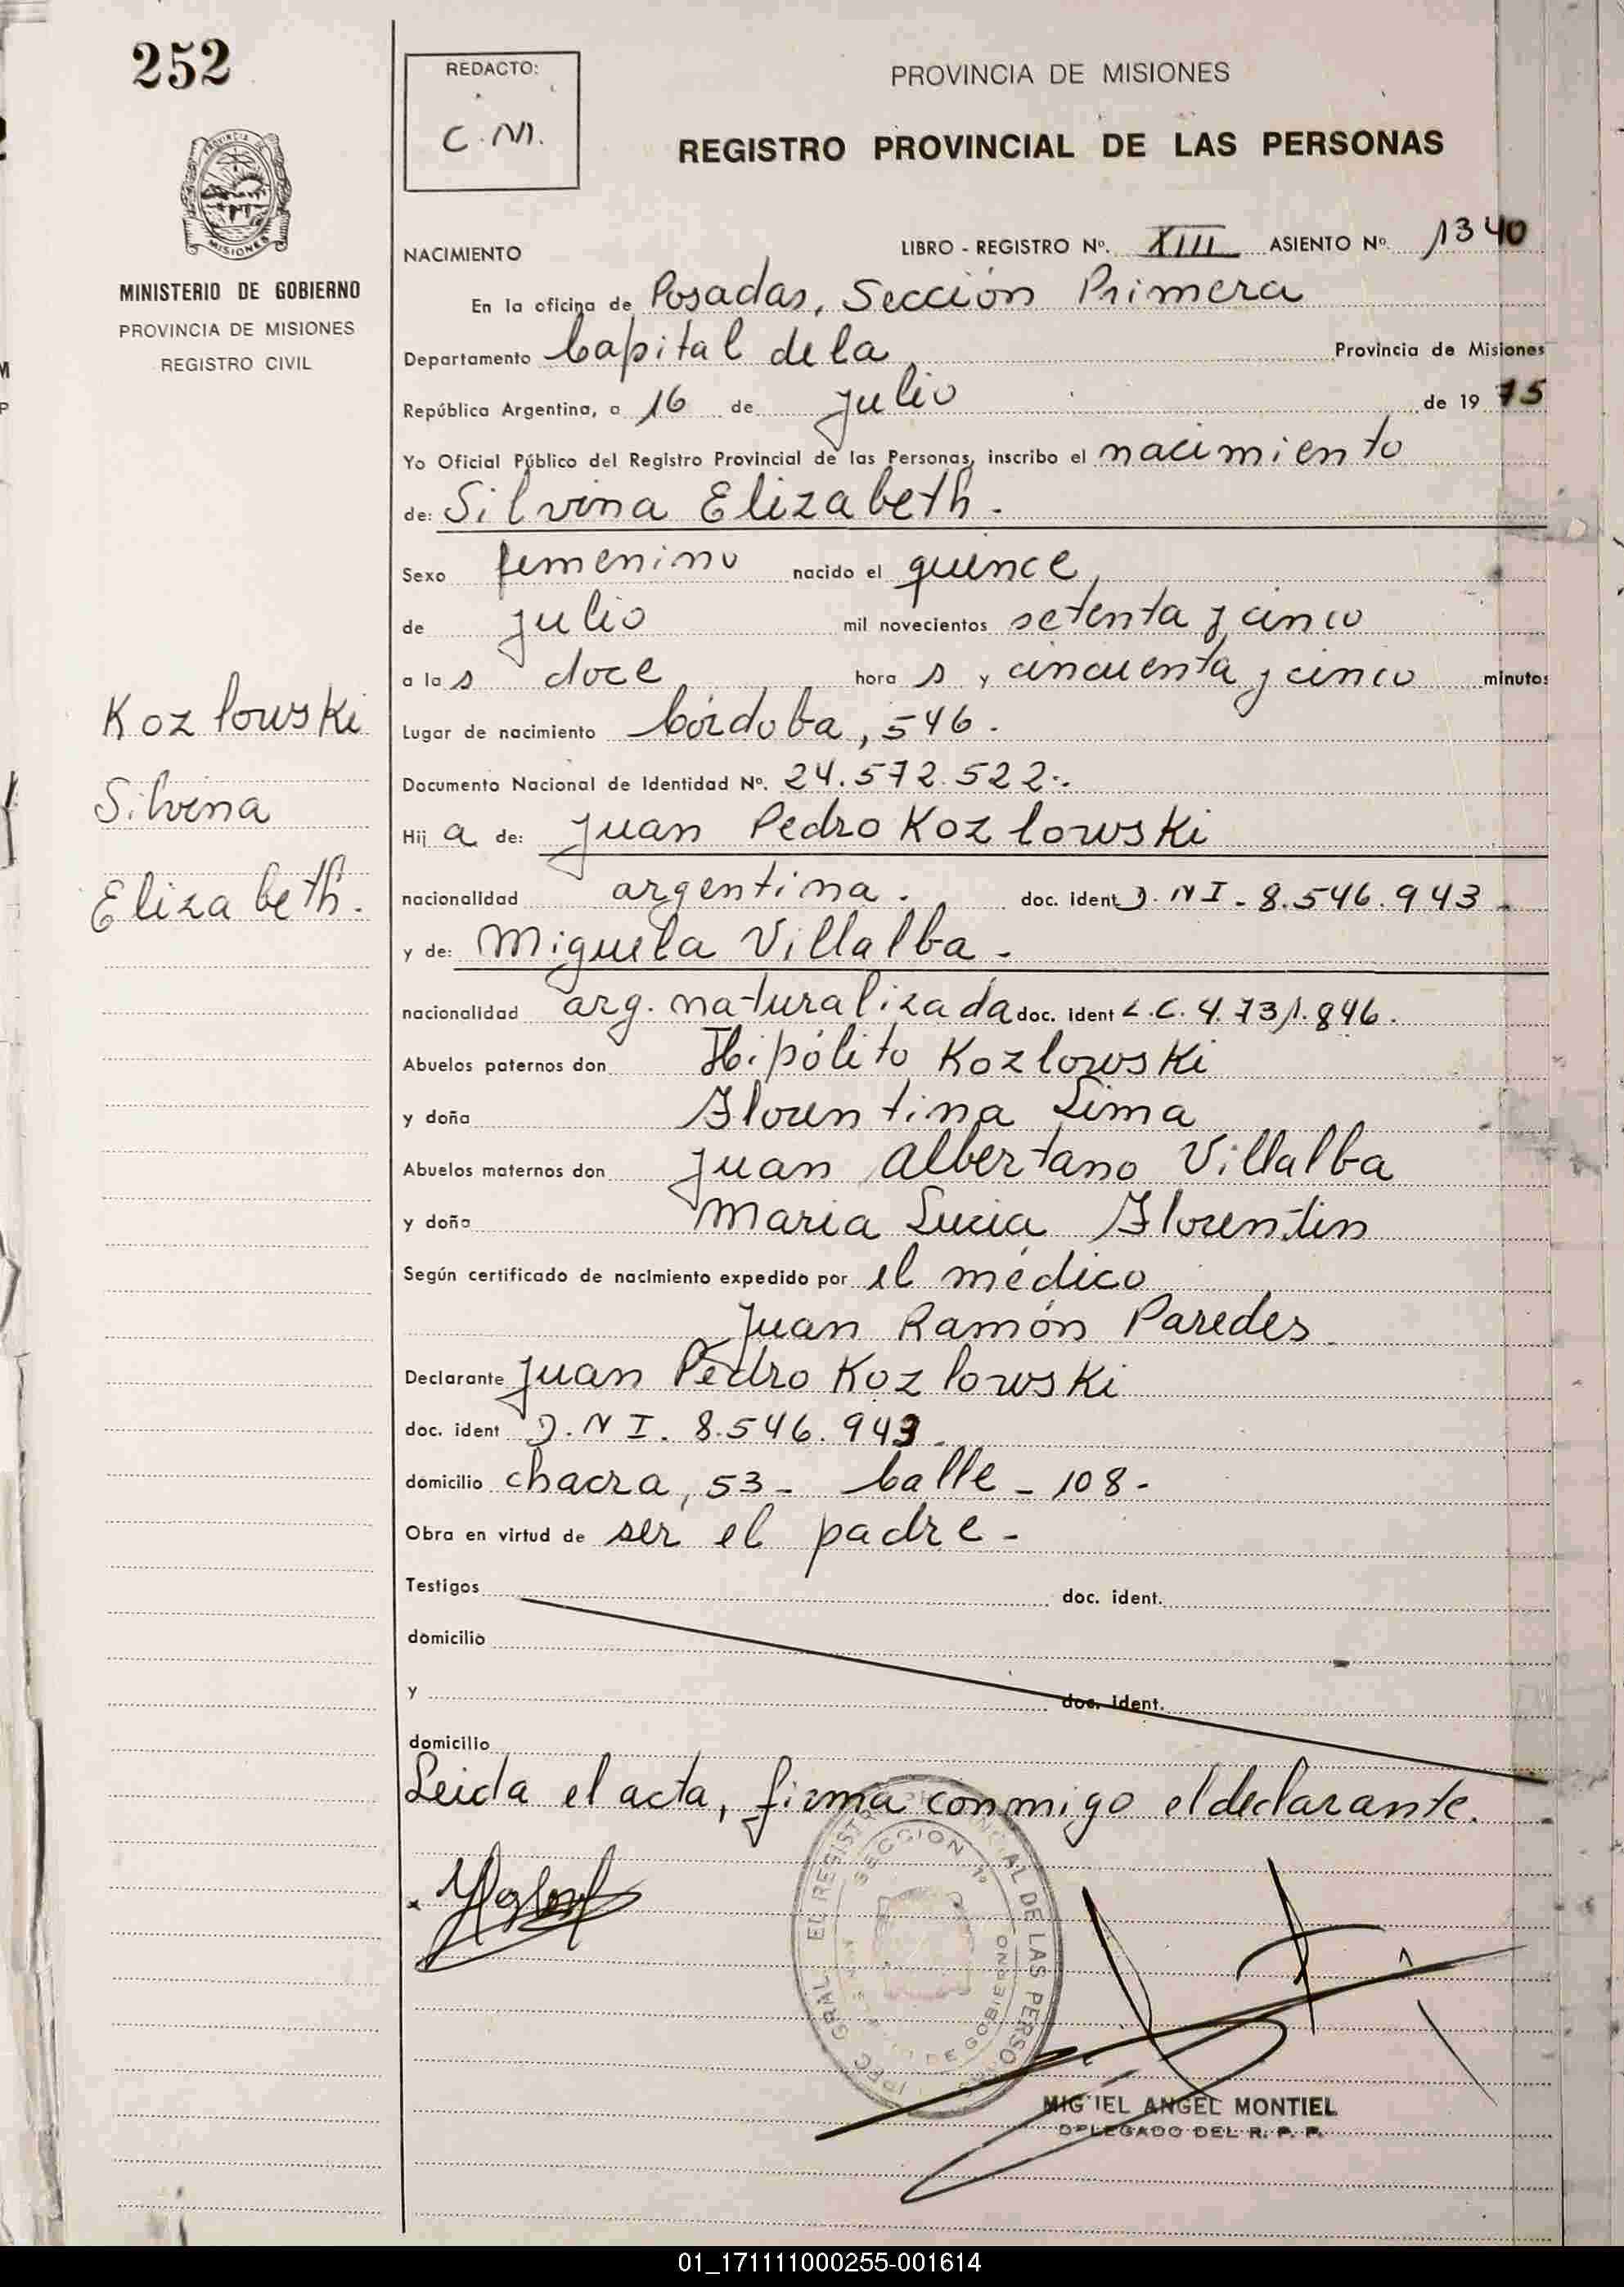 252
REDACTO:
C.M.
PROVINCIA DE MISIONES
REGISTRO PROVINCIAL DE LAS PERSONAS
PROVINCIA DE
MISIONES
MINISTERIO DE GOBIERNO
PROVINCIA DE MISIONES
REGISTRO CIVIL
NACIMIENTO
LIBRO - REGISTRO Nº. XIII ASIENTO Nº 1340
En la oficina de Posadas, Sección Primera
Departamento Capital de la Provincia de Misiones
República Argentina, a 16 de Julio de 1975
Yo Oficial Público del Registro Provincial de las Personas, inscribo el nacimiento
de: Silvina Elizabeth.
Sexo femenino nacido el quince
de julio mil novecientos setenta y cinco
a las doce horas y cincuenta y cinco minutos
Lugar de nacimiento Córdoba, 546.
Documento Nacional de Identidad Nº. 24.572.522.
Hija de: Juan Pedro Kozlowski
nacionalidad argentina. doc. ident D.N.I. 8.546.943
y de: Miguela Villalba.
nacionalidad arg. naturalizada doc. ident L.C. 4.731.846.
Abuelos paternos don Hipólito Kozlowski
y doña Florentina Lima
Abuelos maternos don Juan Albertano Villalba
y doña Maria Lucia Florentin
Según certificado de nacimiento expedido por el médico
Juan Ramón Paredes
Declarante Juan Pedro Kozlowski
doc. ident D.N.I. 8.546.943.
domicilio chacra, 53- Calle - 108-
Obra en virtud de ser el padre-
Testigos doc. ident.
domicilio
y doc. ident.
domicilio
Leida el acta, firma conmigo el declarante.
Kozlowski
Silvina
Elizabeth.
SECCION 1ª
MIGUEL ANGEL MONTIEL
DELEGADO DEL R. P. P.
01_171111000255-001614